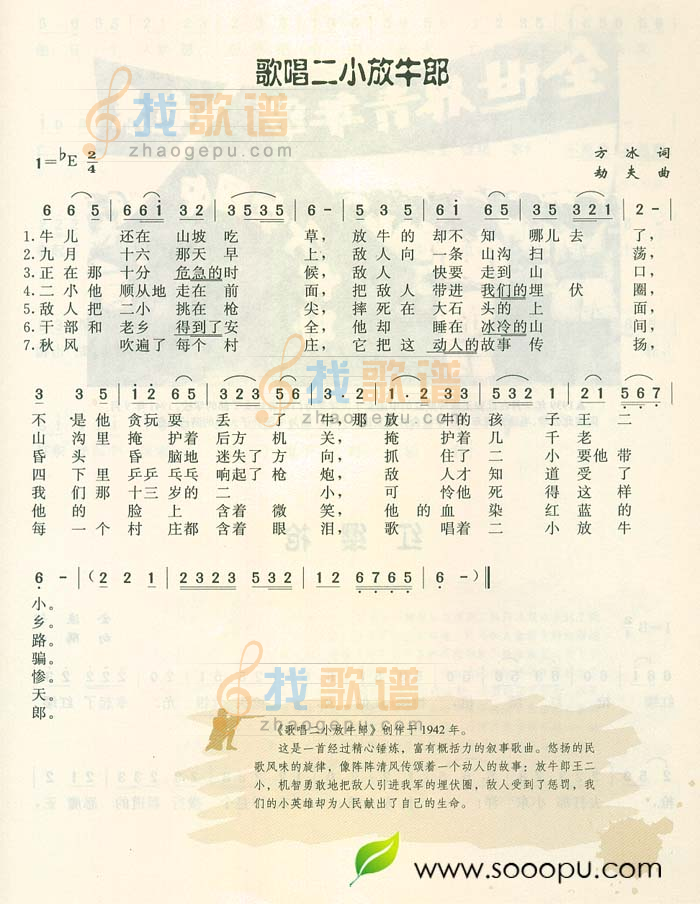 歌唱二小放牛郎
找歌谱
zhaogepu.com
1=♭E 2/4
方冰 词
劫夫 曲
6 6 5 | 6 6 i 3 2 | 3 5 3 5 | 6 - | 3 5 3 5 | 6 i 6 5 | 3 5 3 2 1 | 2 - |
1.牛儿 还在 山坡 吃 草，放牛的 却不 知 哪儿 去 了，
2.九月 十六 那天 早 上，敌人 向 一条 山沟 扫 荡，
3.正在 那 十分 危急的 时 候，敌人 快要 走到 山 口，
4.二小 他 顺从地 走在 前 面，把敌人 带进 我们的 埋 伏 圈，
5.敌人 把 二小 挑在 枪 尖，摔死在 大石 头的 上 面，
6.干部 和 老乡 得到了 安 全，他却 睡在 冰冷的 山 间，
7.秋风 吹遍了 每个 村 庄，它把这 动人的 故事 传 扬，
找歌谱
zhaogepu.com
不是他 贪玩耍 丢 了 牛，那放 牛的 孩 子 王 二
山 沟里 掩 护着 后方 机 关，掩 护着 几 千 老
昏 头 昏 脑地 迷失了 方 向，抓 住了 二 小 要他 带
四 下里 乒乒 乓乓 响起了 枪 炮，敌 人才 知 道 受了
我 们那 十三 岁的 二 小，可 怜他 死 得 这样
他 的 脸上 含着 微 笑，他 的 血染 红 蓝的
每 一个 村庄 都 含着 眼 泪，歌 唱着 二 小 放牛
6 - | ( 2 2 1 | 2 3 2 3 5 | 3 2 3 5 2 | 1 2 6 7 6 5 | 6 - ) ‖
小。
乡。
路。
骗。
惨。
天。
郎。
找歌谱
zhaogepu.com
《歌唱二小放牛郎》创作于 1942 年。
这是一首经过精心锤炼，富有概括力的叙事歌曲。悠扬的民
歌风味的旋律，像阵阵清风传颂着一个动人的故事：放牛郎王二
小，机智勇敢地把敌人引进我军的埋伏圈，敌人受到了惩罚，我
们的小英雄却为人民献出了自己的生命。
www.sooopu.com